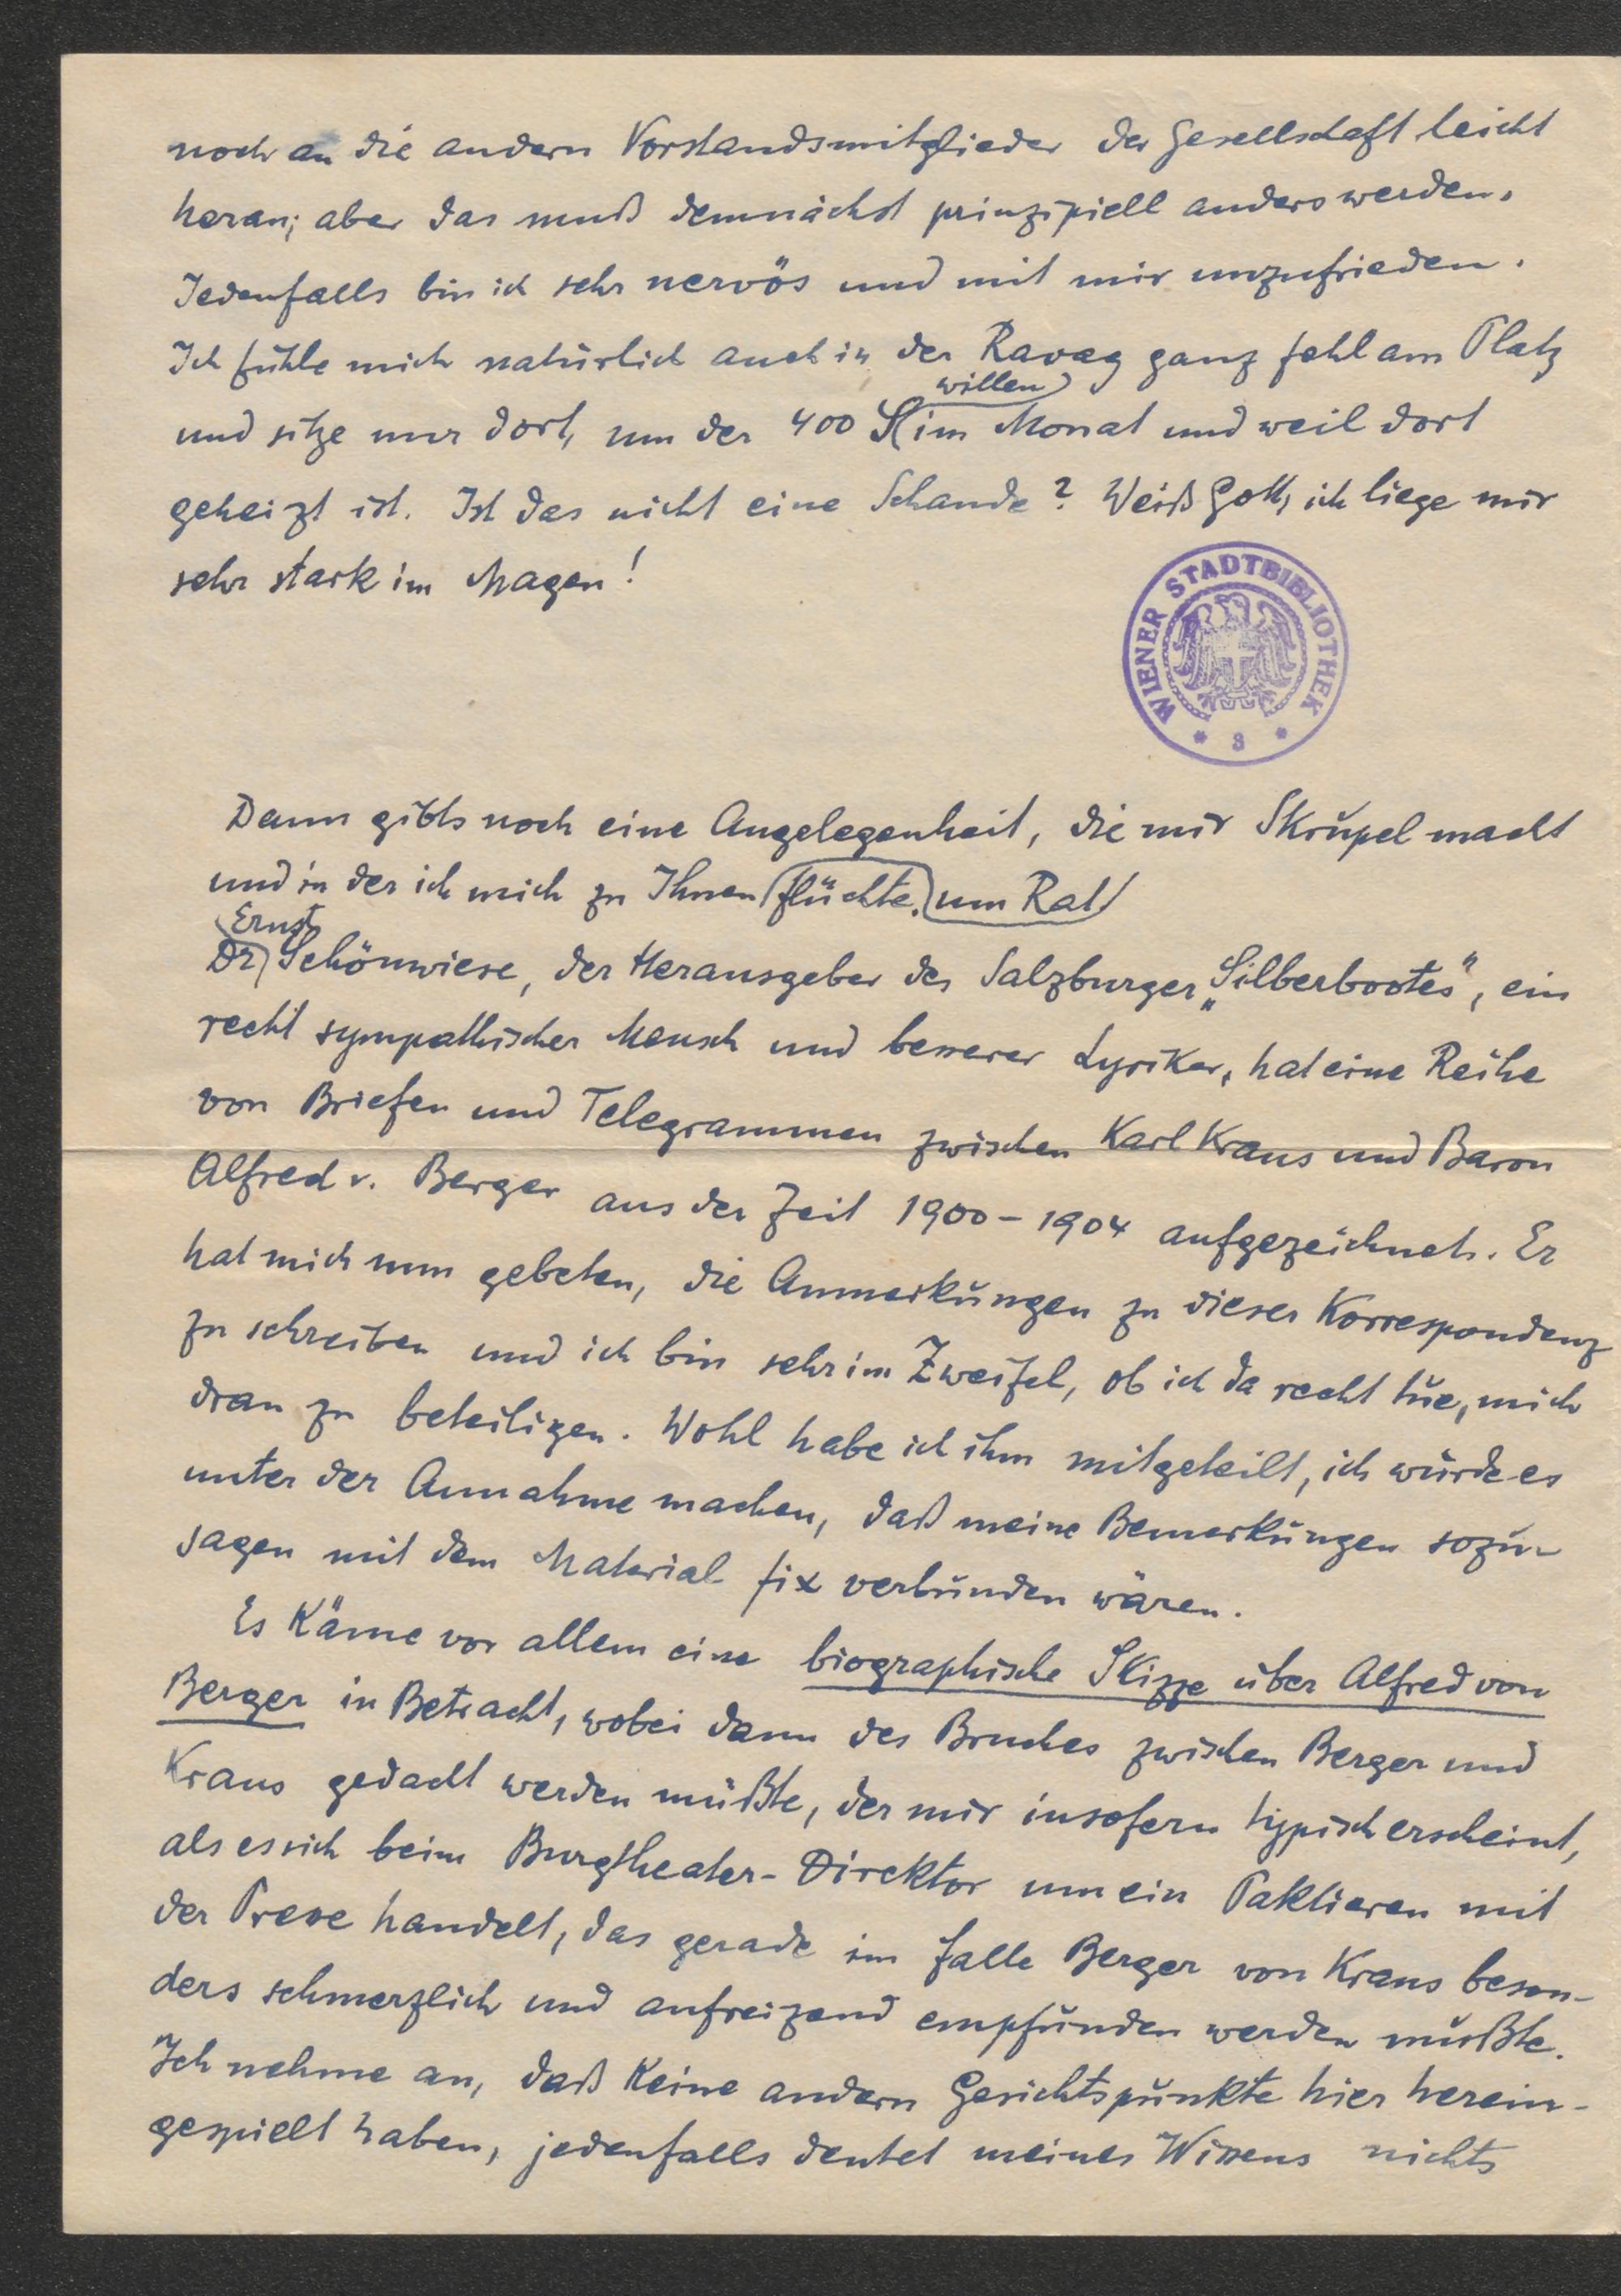 noch an die andern Vorstandsmitglieder der Gesellschaft leicht
heran; aber das muß demnächst prinzipiell anders werden.
Jedenfalls bin ich sehr nervös und mit mir unzufrieden.
Ich fühle mich natürlich auch in der Ravag ganz fehl am Platz
willen
und sitze nur dort, um der 400 S im Monat und weil dort
geheizt ist. Ist das nicht eine Schande? Weiß Gott, ich liege mir
sehr stark im Magen!
WIENER STADTBIBLIOTHEK
* 3 *
Dann gibts noch eine Angelegenheit, die mir Skrupel macht
und in der ich mich zu Ihnen flüchte. um Rat
Ernst
Dr Schönwiese, der Herausgeber des Salzburger „Silberbootes", ein
recht sympathischer Mensch und besserer Lyriker, hat eine Reihe
von Briefen und Telegrammen zwischen Karl Kraus und Baron
Alfred v. Berger aus der Zeit 1900-1904 aufgezeichnet. Er
hat mich nun gebeten, die Anmerkungen zu dieser Korrespondenz
zu schreiben und ich bin sehr im Zweifel, ob ich da recht tue, mich
dran zu beteiligen. Wohl habe ich ihm mitgeteilt, ich würde es
unter der Annahme machen, daß meine Bemerkungen sozu-
sagen mit dem Material fix verbunden wären.
Es käme vor allem eine biographische Skizze über Alfred von
Berger in Betracht, wobei dann des Bruches zwischen Berger und
Kraus gedacht werden müßte, der mir insofern typisch erscheint,
als es sich beim Burgtheater-Direktor um ein Paktieren mit
der Presse handelt, das gerade im Falle Berger von Kraus beson-
ders schmerzlich und aufreizend empfunden werden mußte.
Ich nehme an, daß keine andern Gesichtspunkte hier herein-
gespielt haben, jedenfalls deutet meines Wissens nichts